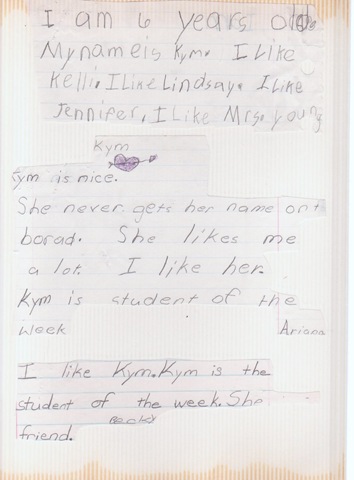 I am 6 years old.
My name is Kym. I Like
Kelli. I Like Lindsay. I Like
Jennifer. I Like Mrs. young
Kym
Kym is nice.
She never gets her name ont
borad. She likes me
a lot. I like her.
Kym is student of the
week
Ariana
I like Kym. Kym is the
student of the week. She
friend.
Becky